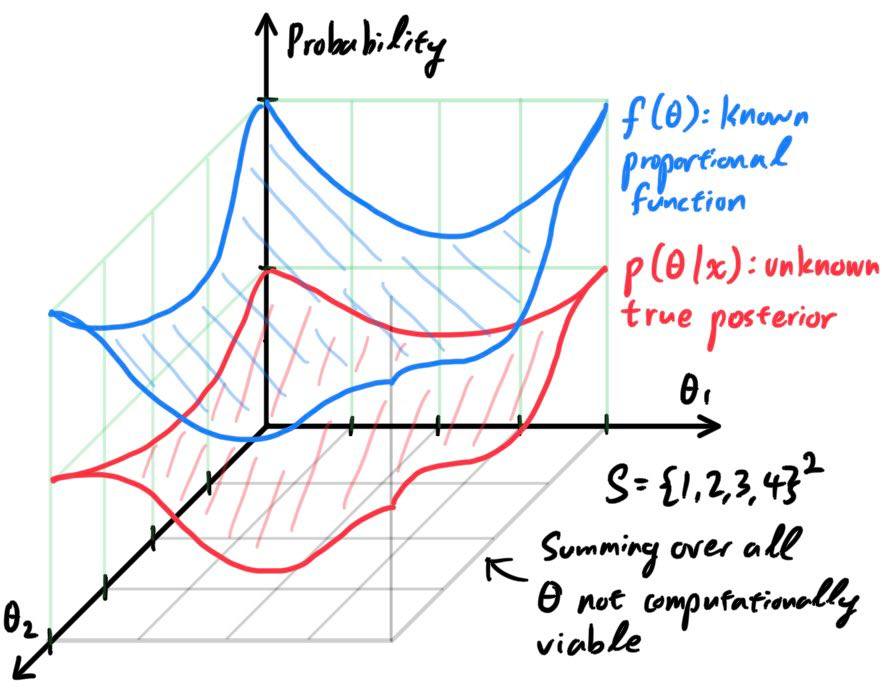 Probability
f(θ): known
proportional
function
p(θ|x): unknown
true posterior
θ₁
S = {1,2,3,4}²
Summing over all
θ not computationally
viable
θ₂